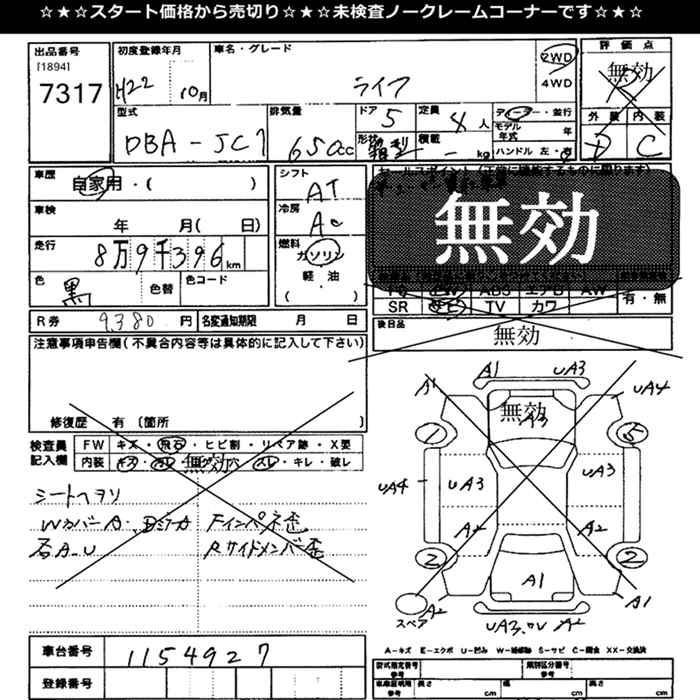 ☆★☆スタート価格から売切り☆★☆未検査ノークレームコーナーです☆★☆
出品番号
[1894]
7317
初度登録年月
H22 10月
車名・グレード
ライフ
2WD
4WD
評価点
無効
外装 内装
D C
型式
DBA-JC1
排気量
650cc
ドア
5
形状
定員
4人
積載
- kg
ディーラー・並行
モデル年式 年
ハンドル 左・右
車歴
自家用・( )
車検
年 月( 日)
走行
8万9千396km
色
黒
色替
色コード
シフト
AT
冷房
AC
燃料
ガソリン
軽・油
( )
無効
PS PW ABS エアB AW
SR ナビ TV カワ
有・無
後日品
無効
R券 9380円
名変通知期限 月 日
注意事項申告欄(不具合内容等は具体的に記入して下さい)
修復歴 有〔箇所 〕
検査員記入欄
FW キズ・飛石・ヒビ割・リペア跡・X要
内装 キズ・コゲ・無効穴・スレ・キレ・破レ
シートヘタリ
WカバーA、BミラA Fインパネ歪
石A-U Rサイドメンバー歪
車台番号
1154927
登録番号
A1 UA3
A1 UA4
無効
A3
1 5
UA4 UA3 UA3
A2 A2
2 2
A1
スペア A2 A1
A2
A-キズ E-エクボ U-凹み W-補修跡 S-サビ C-腐食 XX-交換済
型式指定番号
参考
類別区分番号
参考
車庫証明用
参考
長さ cm
幅 cm
高さ cm